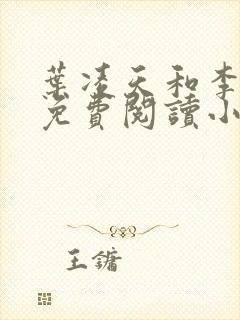 葉凌天和李
免費閱讀小
王鏞